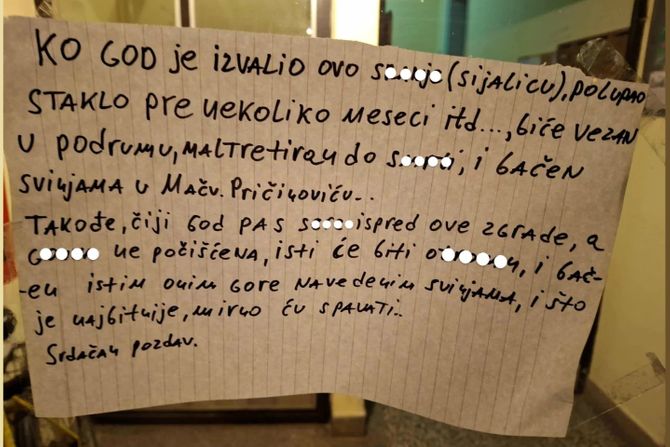 KO GOD je IZVALIO OVO (SIJALICU), POLUPAO
STAKLO pre nekoliko meseci itd..., biće vezan
u podrumu, MALTRETIRAN do, i bAČEN
SVINJAMA u MAČV. PRIČINOVIĆU..
TAKOĐE, čiji GOD PAS ispred ove zgrade, A
ne počišćena, isti će biti, i bAČ-
-en istim onim GORE NAVEDENIM SVINJAMA, i što
je najbitnije, mirno ću spavati..
Srdačan pozdav.